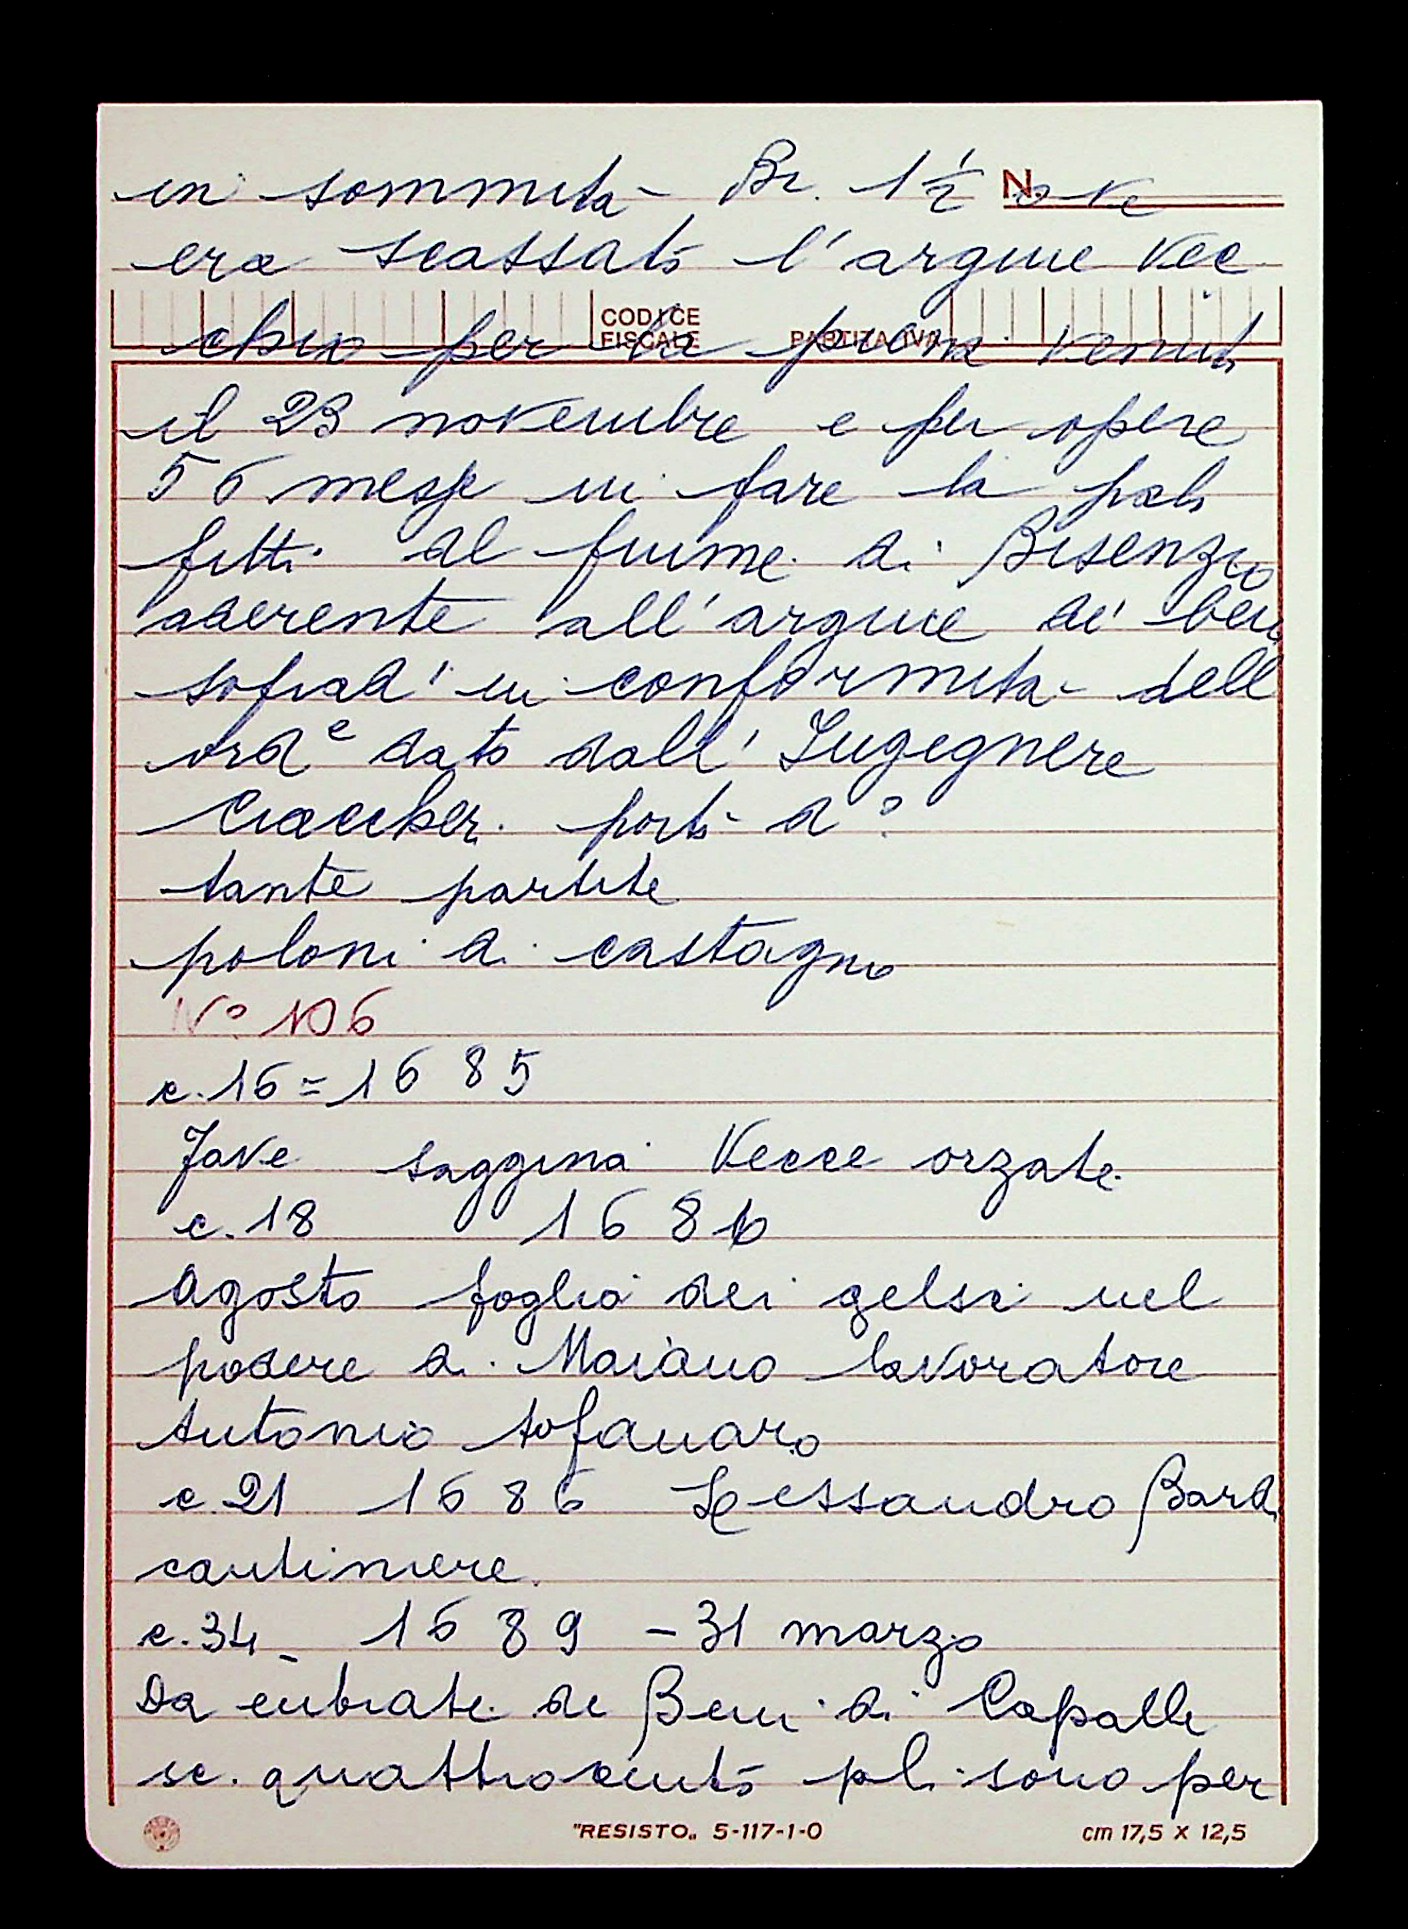 in sommita Br. 1½ N. ove
era scassato l'argine vec
CODICE
FISCALE PARTITA IVA
chio per la piena venuta
il 23 novembre e per opere
56 messe in fare la pali
fitti al fiume di Bisenzio
aderente all'argine de' beni
sofrad' in conformita dell
ord e dato dall' Ingegnere
Ciaccheri porto d°
tante partite
poloni di castagno
N° 106
c. 16 = 1685
Fave saggina Vecce orzate
c. 18 1686
Agosto foglia dei gelsi nel
podere di Maiano lavoratore
Antonio tofanaro
c. 21 1686 Lessandro Bard
cantiniere
c. 34 - 1689 - 31 marzo
Da entrate de Beni di Capalle
sc. quattrocento pli sono per
"RESISTO" 5-117-1-0 cm 17,5 x 12,5